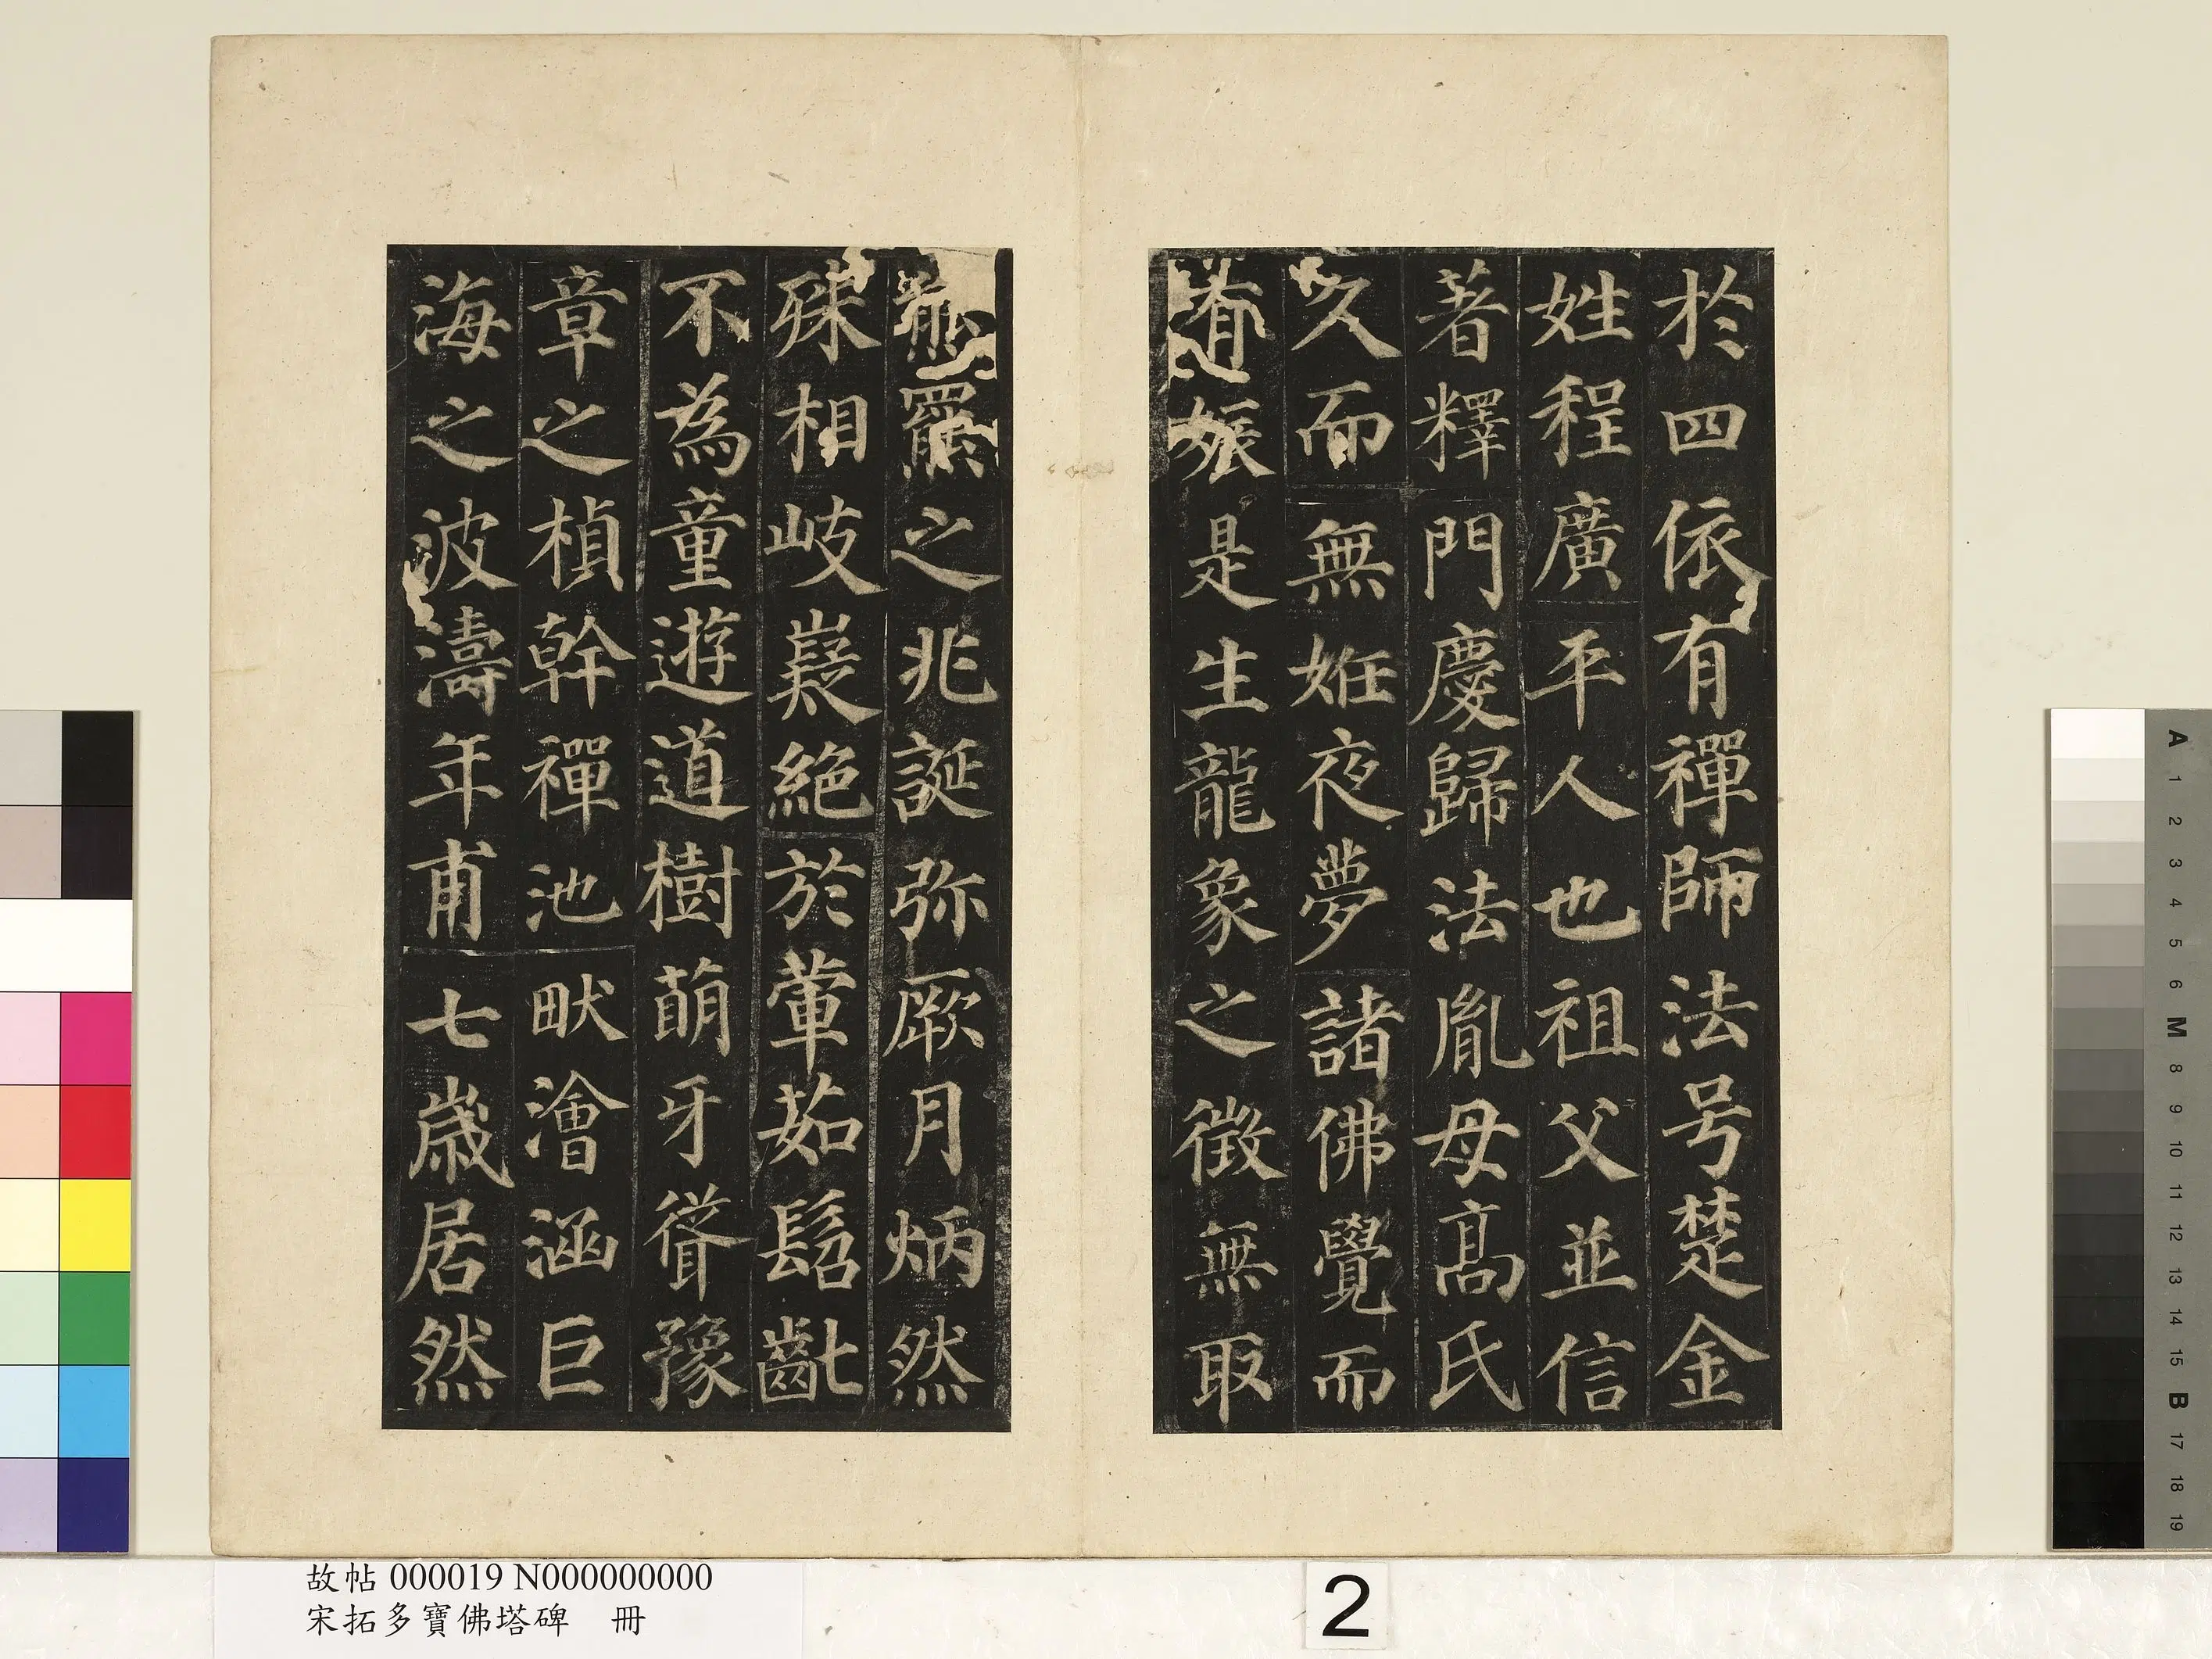 於四依有禪師法号楚金
姓程廣平人也祖父並信
著釋門慶歸法胤母高氏
久而無姙夜夢諸佛覺而
有娠是生龍象之徵無取
熊羆之兆誕弥厥月炳然
殊相岐嶷絕於葷茹髫齓
不為童遊道樹萌牙聳豫
章之楨幹禪池畎澮涵巨
海之波濤年甫七歲居然
故帖 000019 N000000000
宋拓多寶佛塔碑 冊
2
A
1
2
3
4
5
6
M
8
9
10
11
12
13
14
15
B
17
18
19